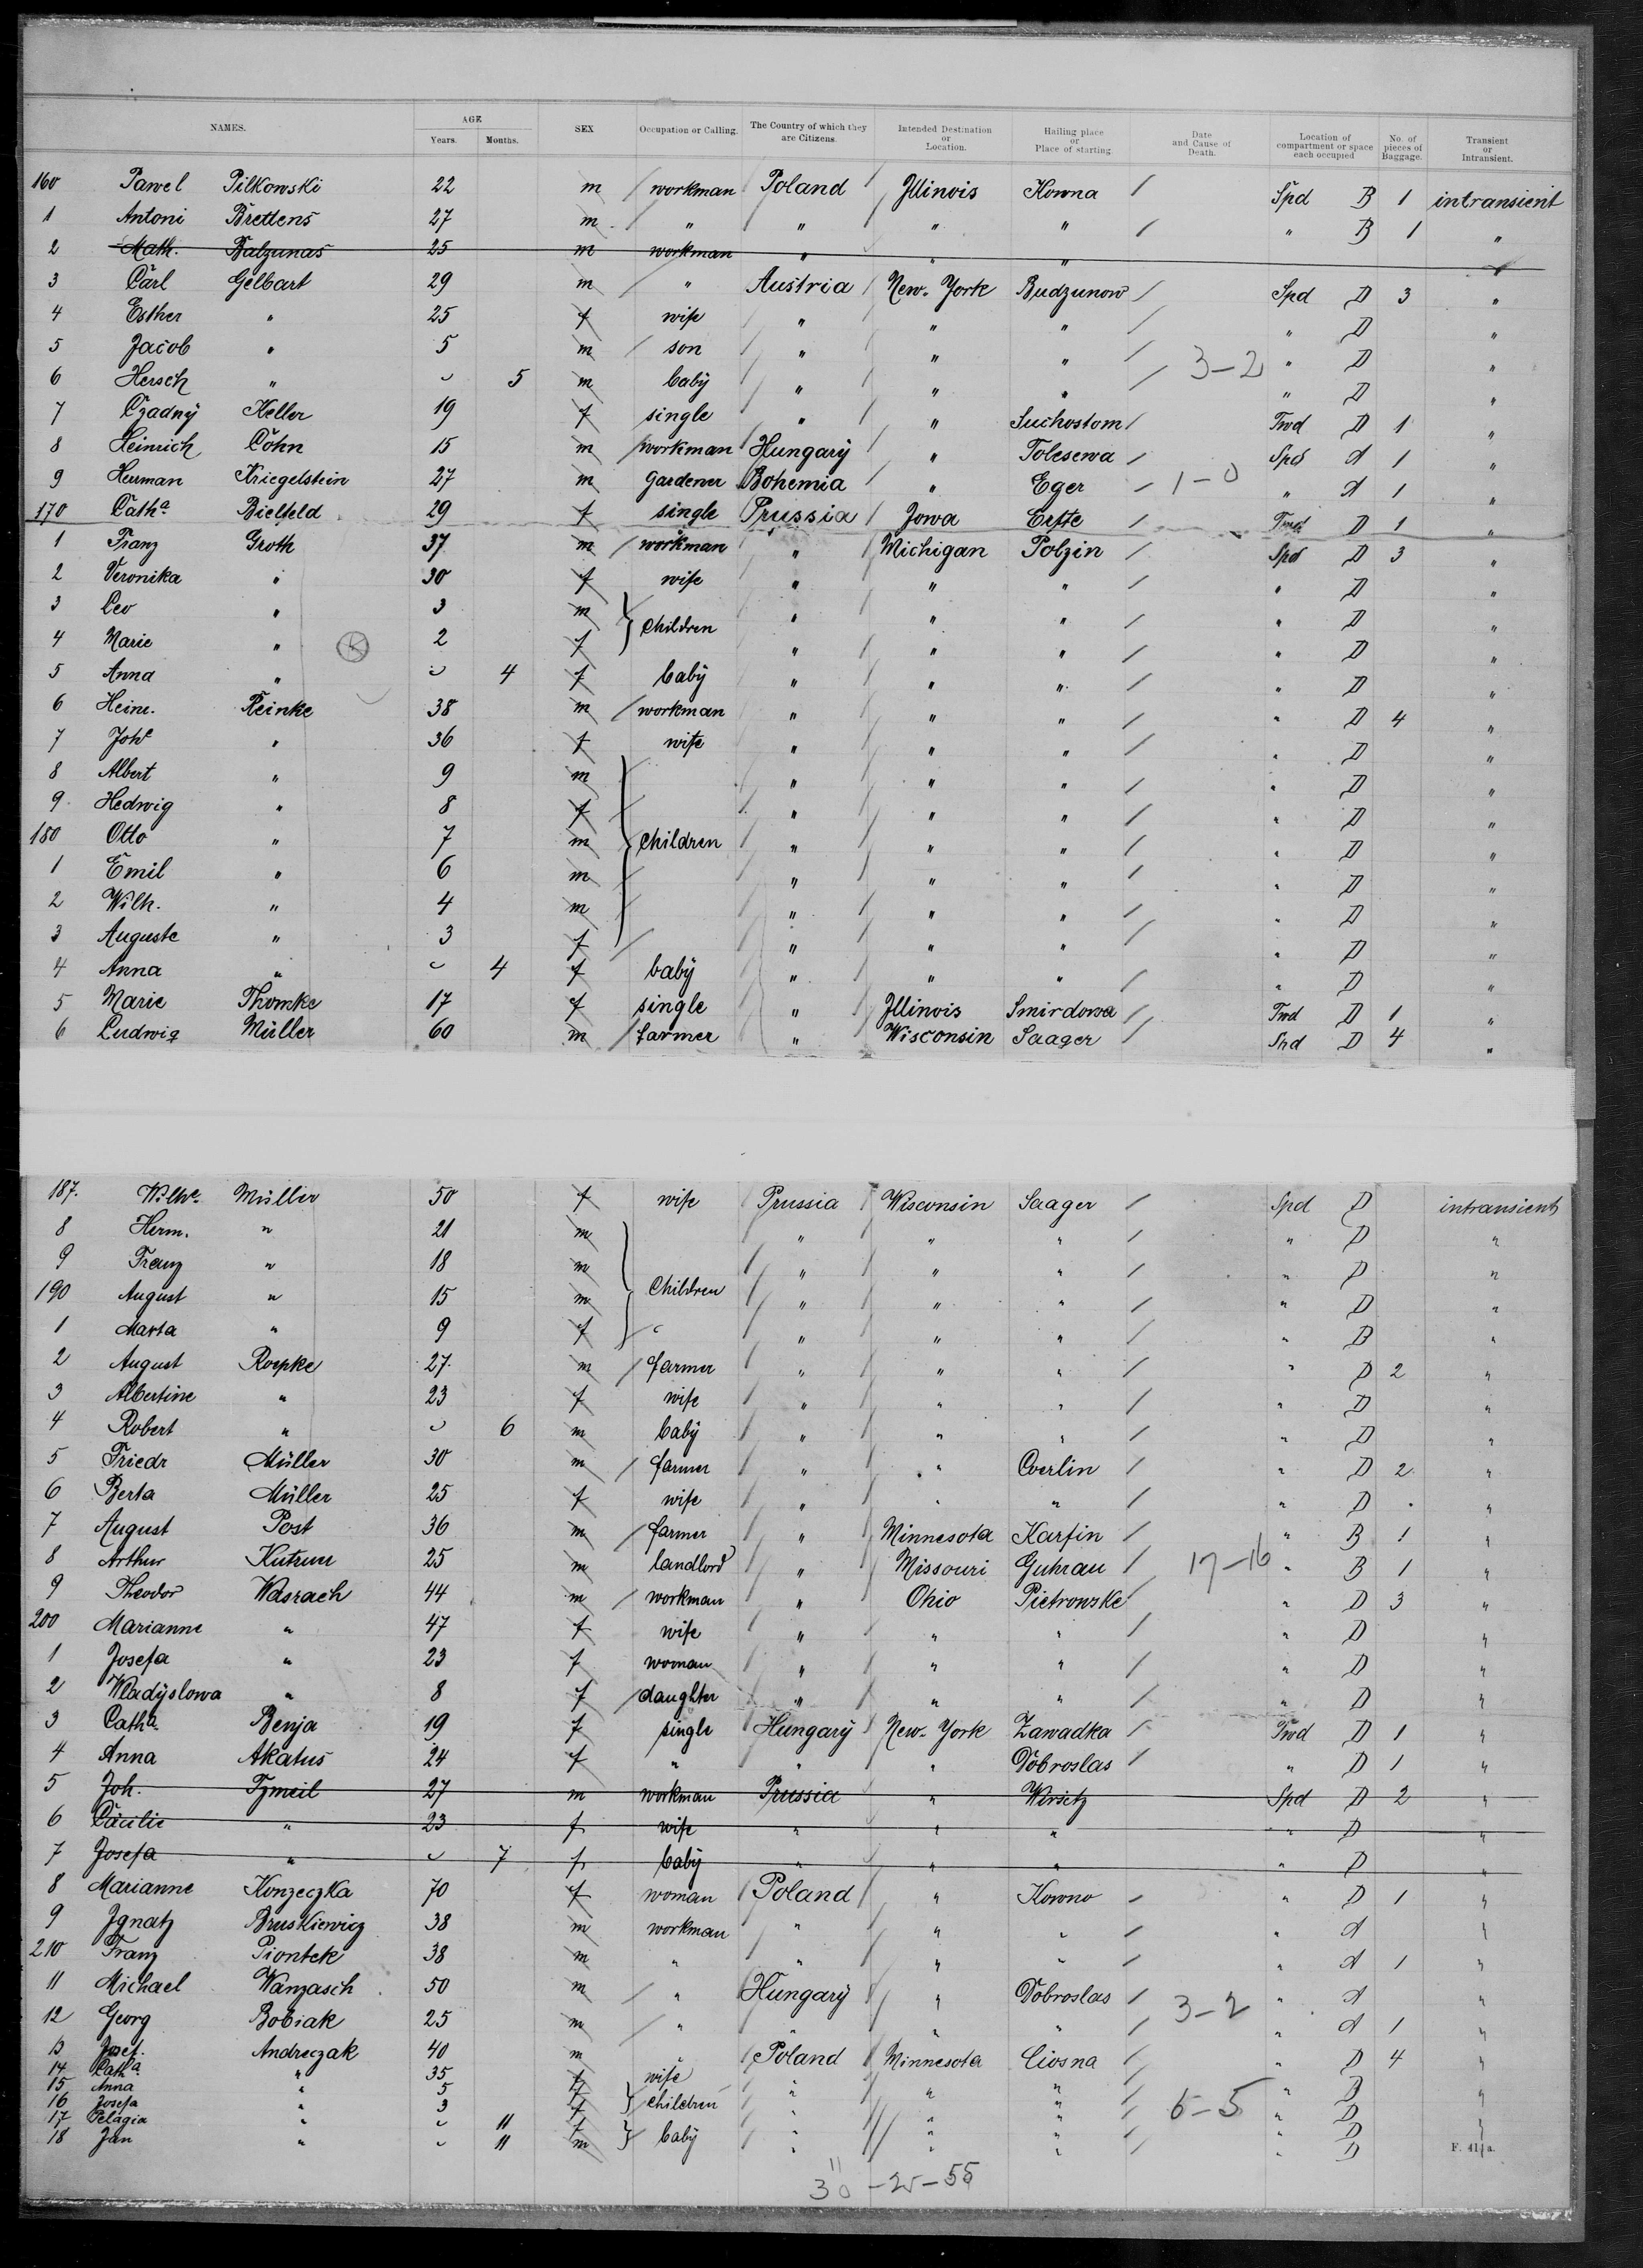 NAMES. AGE SEX Occupation or Calling. The Country of which they are Citizens. Intended Destination or Location. Hailing place or Place of starting. Date and Cause of Death. Location of compartment or space each occupied No. of pieces of Baggage. Transient or Intransient.
Years. Months.
160 Pawel Pilkowski 22 m workman Poland Illinois Kowna Spd B 1 intransient
1 Antoni Brettens 27 m " " " " " B 1 "
2 Math. Balzunas 25 m workman " " " "
3 Carl Gelbart 29 m " Austria New-York Budzunow Spd D 3 "
4 Esther " 25 f wife " " " " D "
5 Jacob " 5 m son " " " 3-2 " D "
6 Hersch " 5 m baby " " " " D "
7 Czadny Keller 19 f single " " Suchostom Fwd D 1 "
8 Heinrich Cohn 15 m workman Hungary " Tolcsewa Spd A 1 "
9 Herman Kriegelstein 27 m gardener Bohemia " Eger 1-0 " A 1 "
170 Catha Bielfeld 29 f single Prussia Iowa Erfte Fwd D 1 "
1 Franz Groth 37 m workman " Michigan Polzin Spd D 3 "
2 Veronika " 30 f wife " " " " D "
3 Leo " 3 m children " " " " D "
4 Marie " 2 f " " " " D "
5 Anna " 4 f baby " " " " D "
6 Heinr. Reinke 38 m workman " " " " D 4 "
7 Johe " 36 f wife " " " " D "
8 Albert " 9 m " " " " D "
9 Hedwig " 8 f " " " " D "
180 Otto " 7 m children " " " " D "
1 Emil " 6 m " " " " D "
2 Wilh. " 4 m " " " " D "
3 Auguste " 3 f " " " " D "
4 Anna " 4 f baby " " " " D "
5 Marie Thomke 17 f single " Illinois Smirdowa Fwd D 1 "
6 Ludwig Müller 60 m farmer " Wisconsin Saager Spd D 4 "
187. Wilhe Müller 50 f wife Prussia Wisconsin Saager Spd D intransient
8 Herm. " 21 m " " " " D "
9 Franz " 18 m " " " " D "
190 August " 15 m Children " " " " D "
1 Marta " 9 f " " " " D "
2 August Roepke 27 m farmer " " " " D 2 "
3 Albertine " 23 f wife " " " " D "
4 Robert " 6 m baby " " " " D "
5 Friedr Müller 30 m farmer " " Coerlin " D 2 "
6 Berta Müller 25 f wife " " " " D "
7 August Post 36 m farmer " Minnesota Karfin " B 1 "
8 Arthur Kutzner 25 m landlord " Missouri Guhrau 17-16 " B 1 "
9 Theodor Wasrach 44 m workman " Ohio Pietrowske " D 3 "
200 Marianne " 47 f wife " " " " D "
1 Josefa " 23 f woman " " " " D "
2 Wladyslowa " 8 f daughter " " " " D "
3 Catha Benja 19 f single Hungary New-York Zawadka Fwd D 1 "
4 Anna Akatus 24 f " " " Dobroslas " D 1 "
5 Joh. Tzmeil 27 m workman Prussia " Wirsitz Spd D 2 "
6 Cäcilie " 23 f wife " " " " D "
7 Josefa " 7 f baby " " " " D "
8 Marianne Konzeczka 70 f woman Poland " Kowno " D 1 "
9 Ignatz Bruskiewicz 38 m workman " " " " A "
210 Franz Piontek 38 m " " " " " A 1 "
11 Michael Wanzasch 50 m " Hungary " Dobroslas 3-2 " A "
12 Georg Bobiak 25 m " " " " " A 1 "
13 Josef. Andreczak 40 m " Poland Minnesota Ciosna " D 4 "
14 Catha " 35 f wife " " " " D "
15 Anna " 5 f children " " " 6-5 " D "
16 Josefa " 3 f " " " " D "
17 Pelagia " 11 f baby " " " " D "
18 Jan " 11 m " " " " D F. 411a.
30-25-55